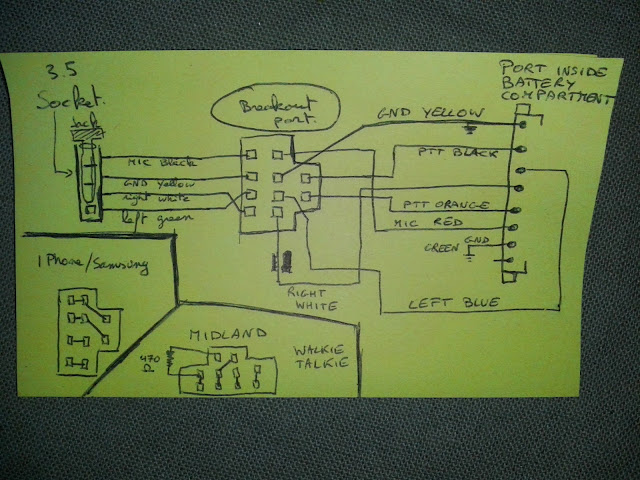 3.5
Socket.
jack
Breakout
port.
PORT INSIDE
BATTERY
COMPARTMENT
GND YELLOW
MIC Black
PTT BLACK
GND Yellow
right white
left green
PTT ORANGE
MIC RED
GREEN GND
RIGHT
WHITE
LEFT BLUE
IPhone/Samsung
MIDLAND
WALKIE
TALKIE
470
Ω